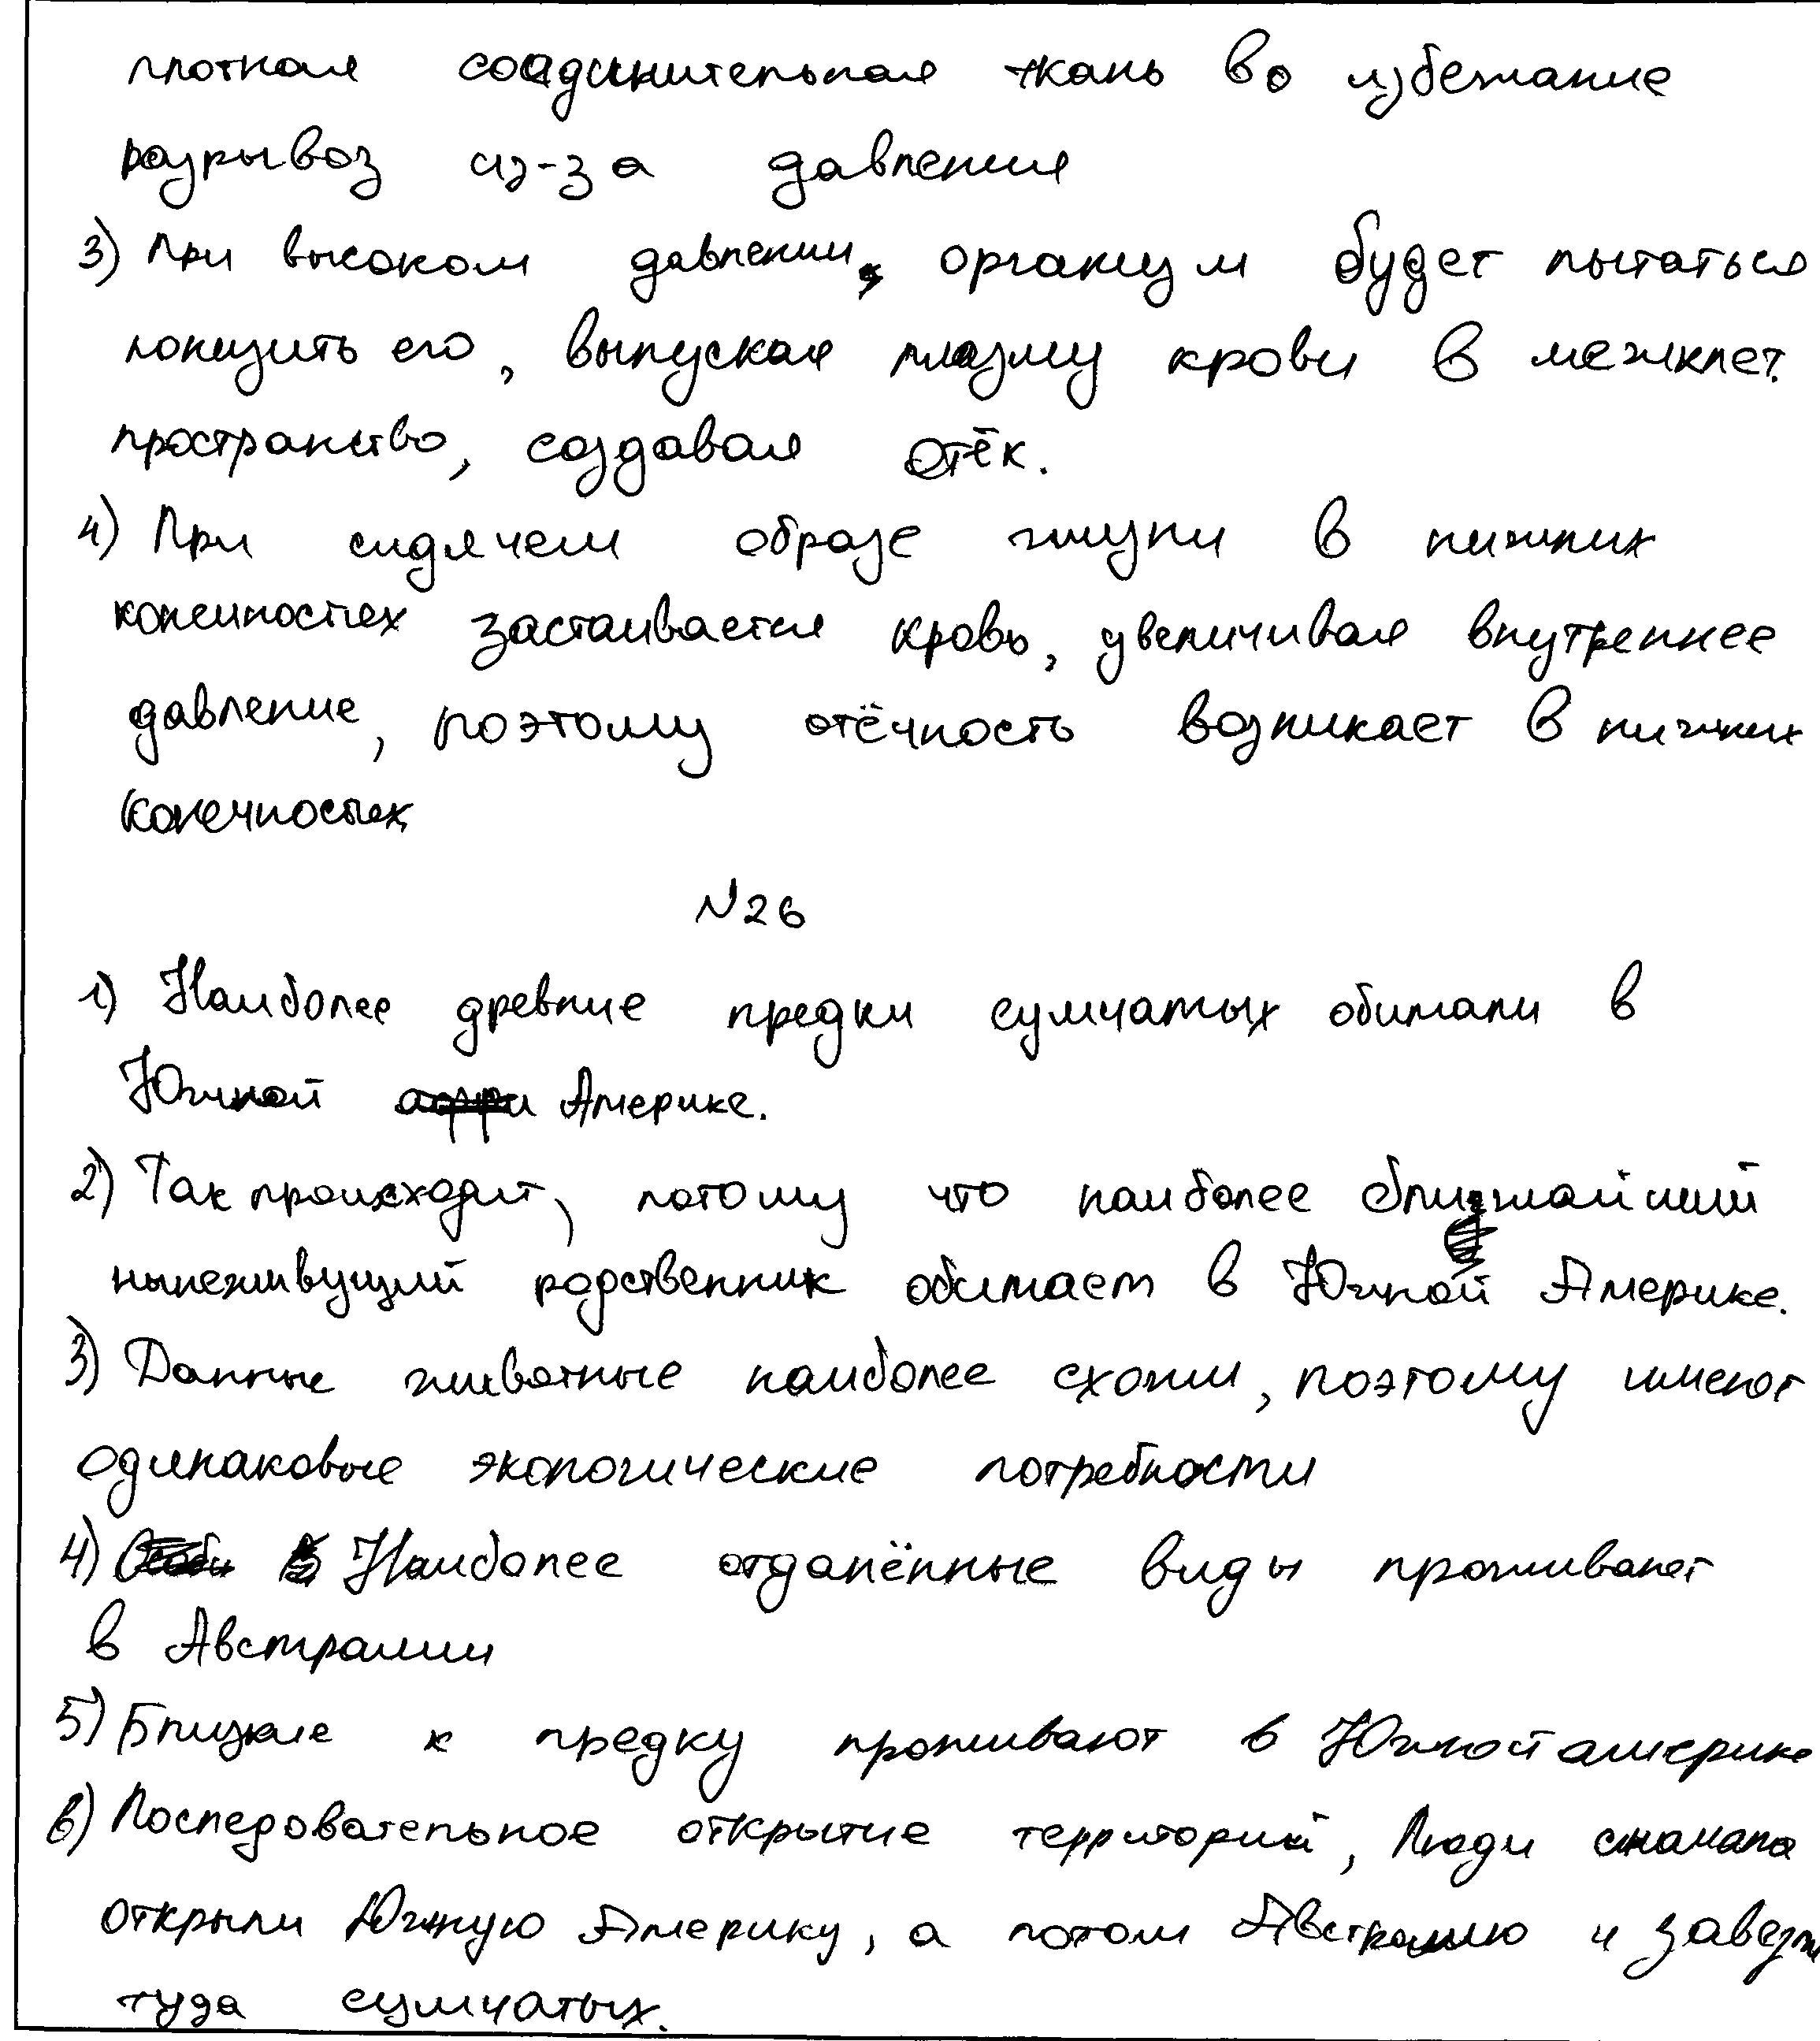 плотная соединительная ткань во избежание
разрывоз из-за давления
3) При высоком давлении, организм будет пытаться
понизить его, выпуская плазму крови в межклет.
пространство, создавая отёк.
4) При сидячем образе жизни в нижних
конечностях застаивается кровь, увеличивая внутреннее
давление, поэтому отёчность возникает в нижних
конечностях
№26
1) Наиболее древние предки сумчатых обитали в
Южной Америке.
2) Так происходит, потому что наиболее ближайший
нынеживущий родственник обитает в Южной Америке.
3) Данные животные наиболее схожи, поэтому имеют
одинаковые экологические потребности
4) Наиболее отдалённые виды проживают
в Австралии
5) Близкие к предку проживают в Южной америке
6) Последовательное открытие территорий, Люди сначала
открыли Южную Америку, а потом Австралию и завезли
туда сумчатых.